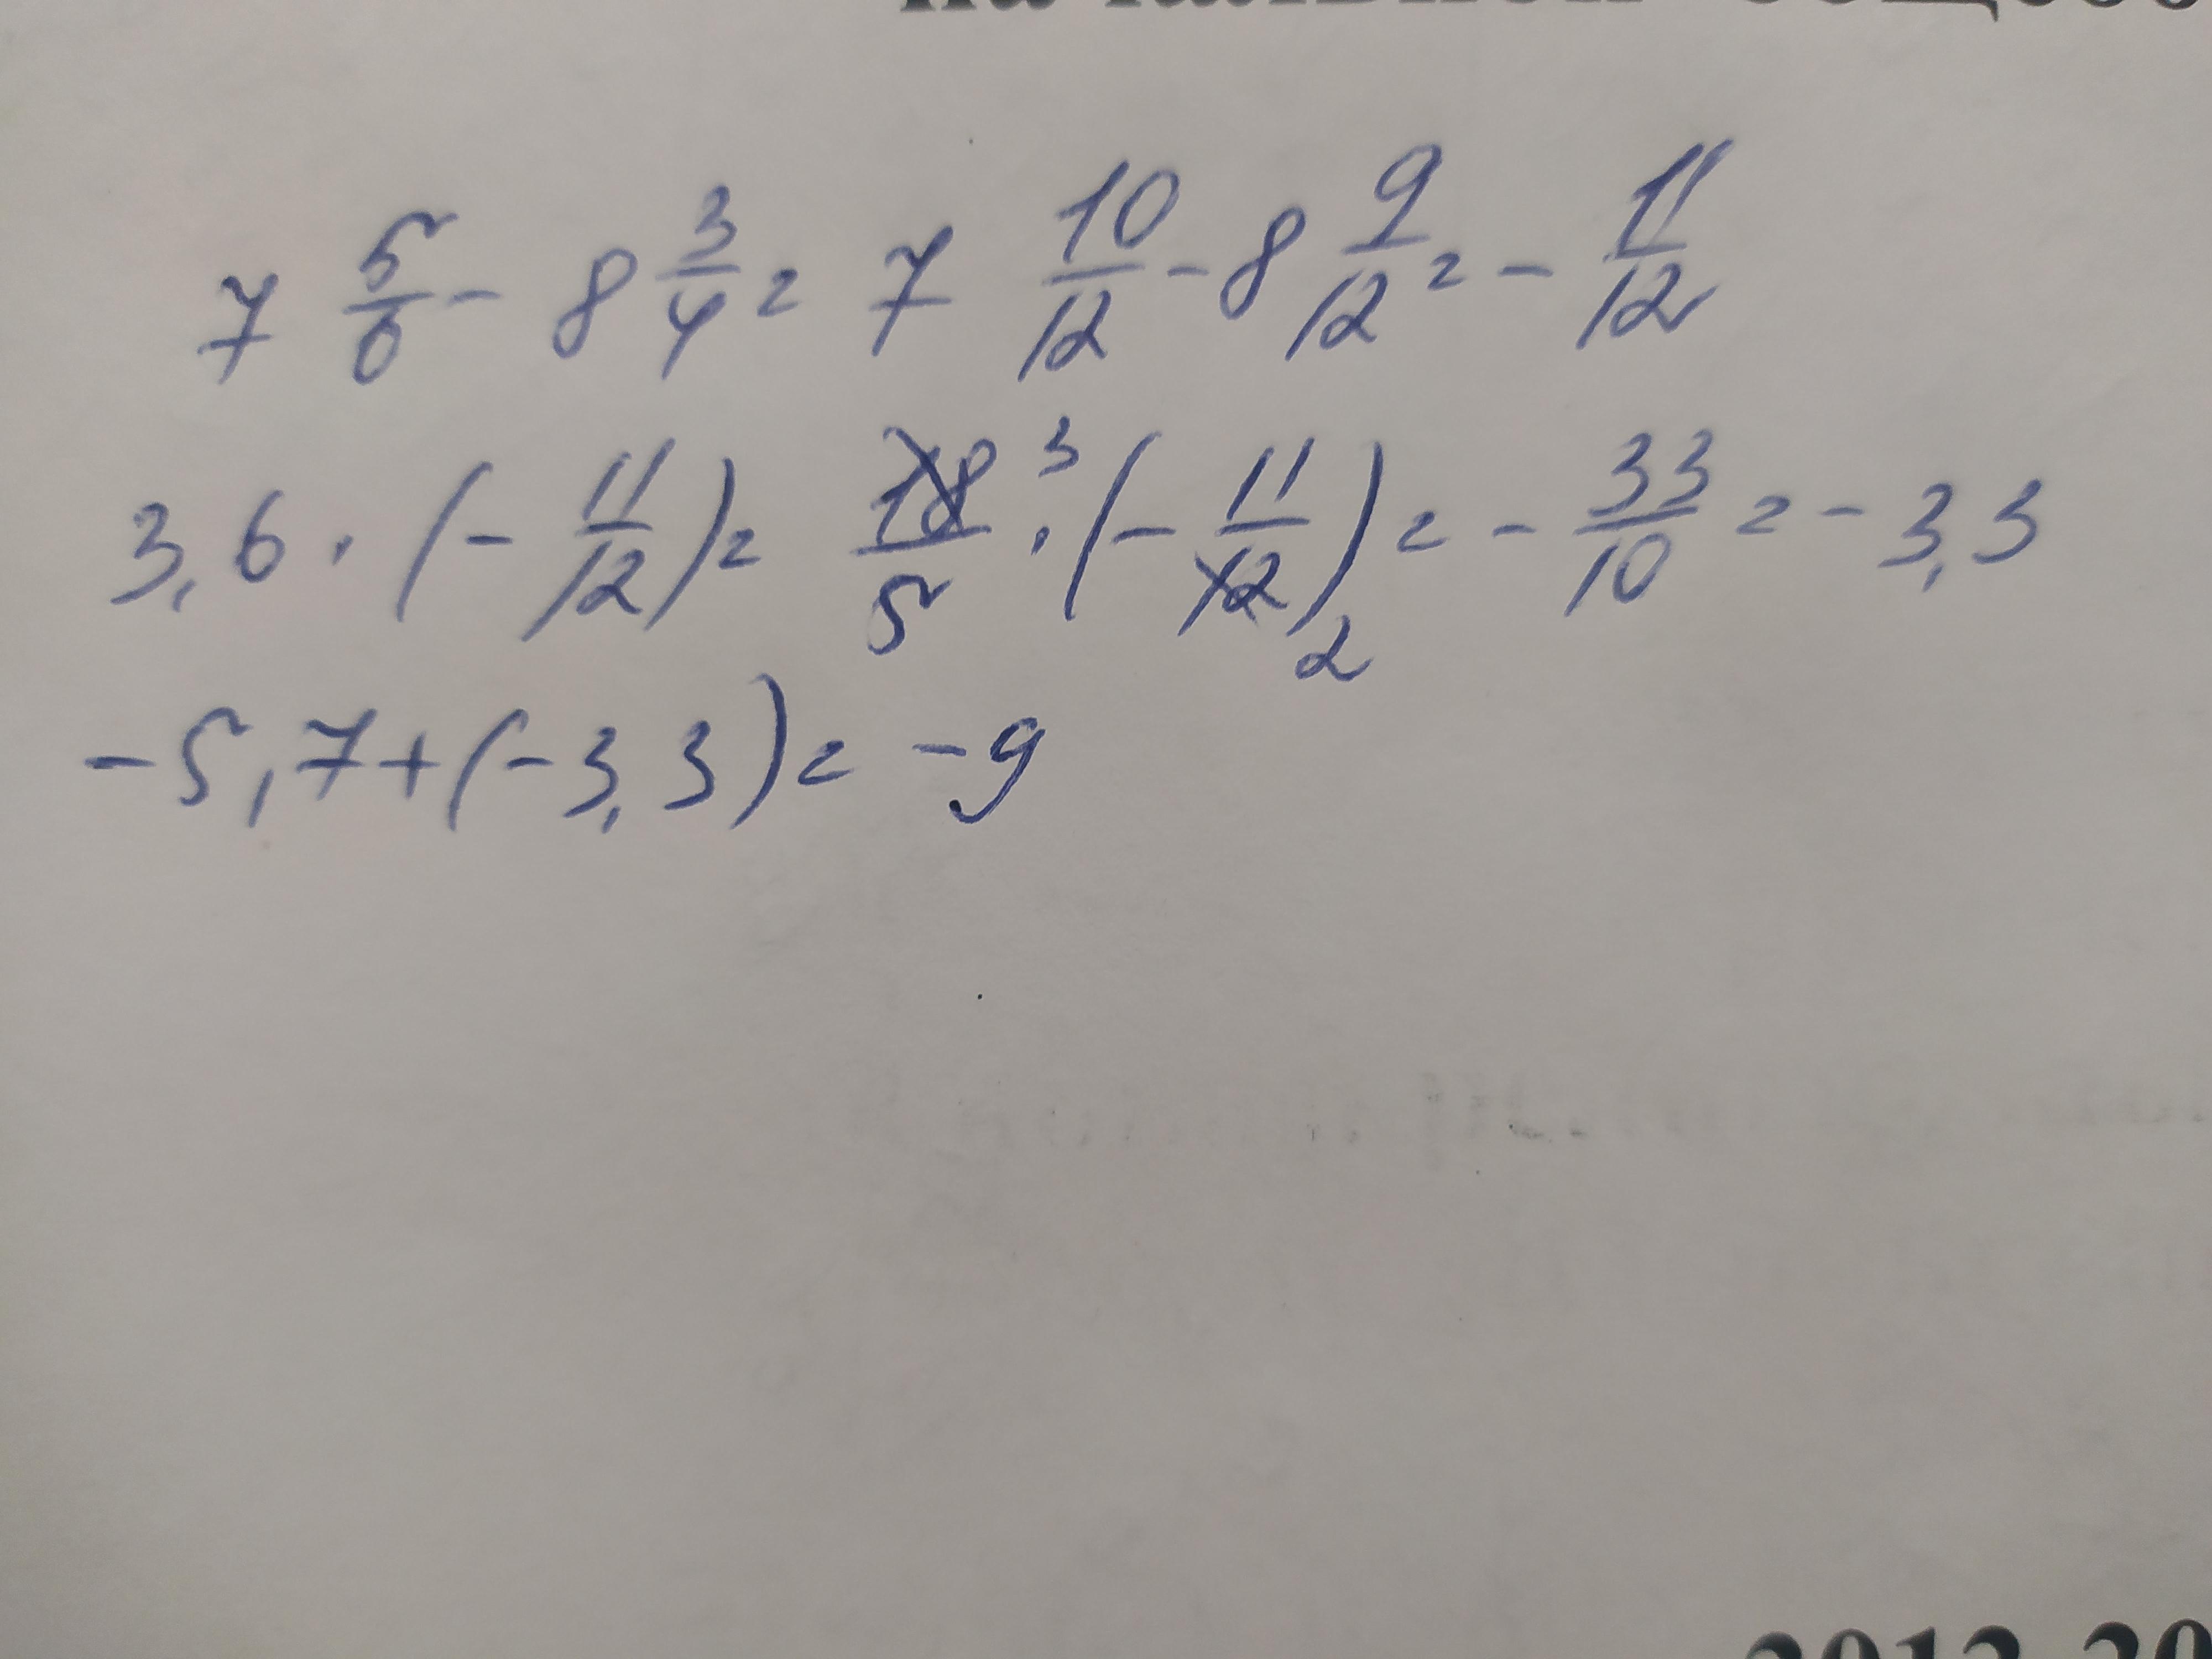 7 5/6 - 8 3/4 = 7 10/12 - 8 9/12 = - 11/12
3,6 · (- 11/12) = 18/5 3 · (- 11/12) 2 = - 33/10 = - 3,3
-5,7+(-3,3) = -9